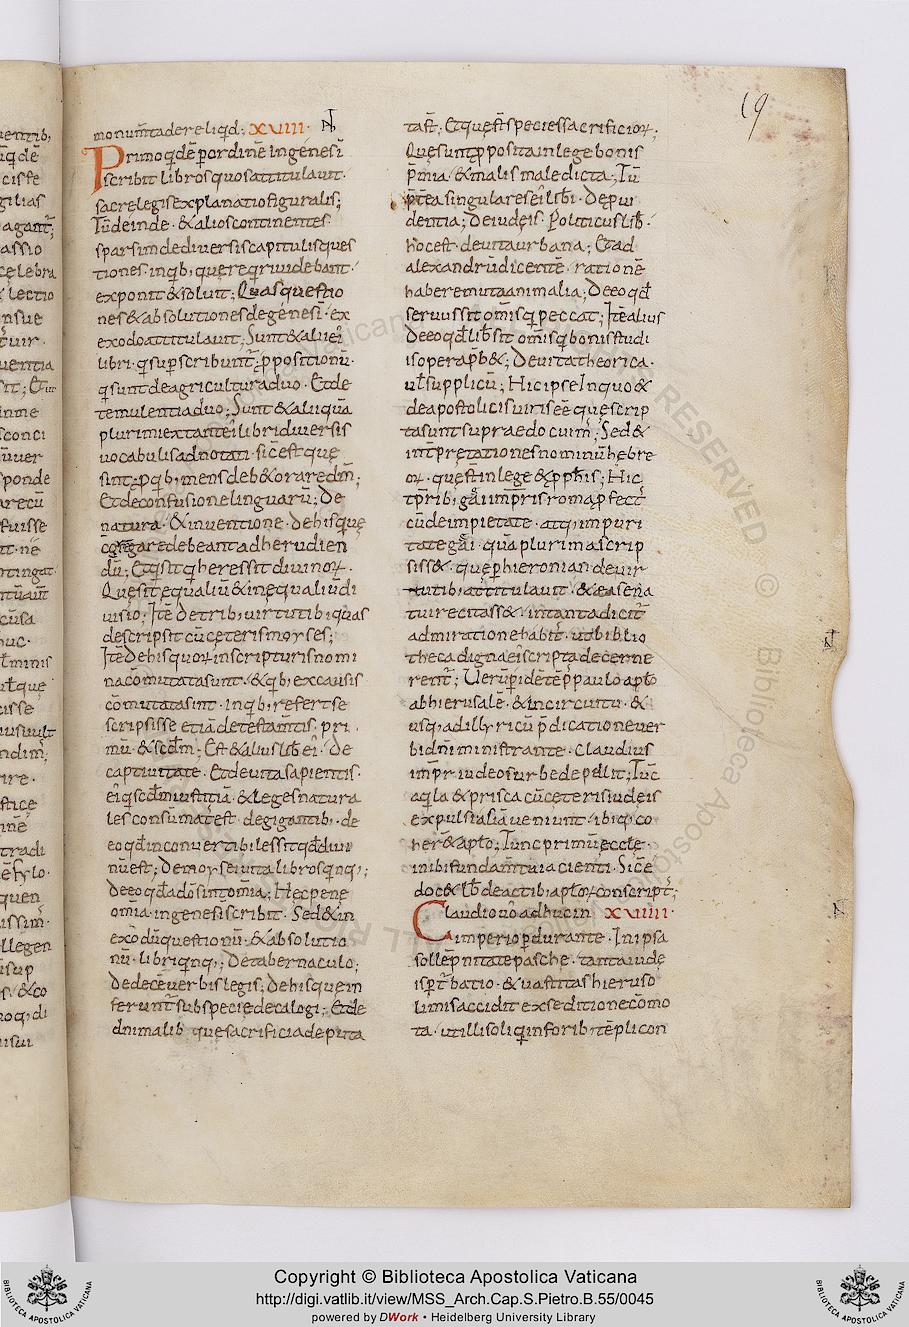 19
monum̄ta dereliq̄d; XVIII·
Primo q̄dē p ordinē in genesi
scribit libros quos attitulavit·
sacre legis explanatio figuralis;
Tū deinde · & alios continentes·
sparsim de diversis capitulis ques
tiones· in qb; quereqr videbant·
exponit & solvit; Quas questio
nes & absolutiones de genesi· ex
exodo attitulavit; Sunt & alii ei
libri· q superscribunt; ppositionū·
q sunt de agricultura duo· Et de
temulentia duo; Sunt & alii quā
plurimi extante libri diversis
vocabulis adnotati· sic est que
sint; p qb; mens deb& orare dm̄;
Et de confusione linguarū; De
natura · & inventione · de his que
c̄gregare debeant ad herudien
dū; Et q sit q heres sit divinoꝝ·
Que sit equaliū & inequaliū di
visio; Itē de trib; virtutib; quas
descripsit cū ceteris moyses;
Itē de his quoꝝ in scripturis nomi
na cōmutata sunt· & qb; ex causis
cōmutata sint· in qb; refert se
scripsisse etiā de testam̄tis· pri
mū & scdm̄; Est & alius lib ei· De
captivitate· Et de vita sapientis·
ei q scdm̄ iustitiā· & leges natura
les consumat est· de gigantib; · de
eo qd inconvertibiles sit qd divi
nū est; De moysei vita libros qnq;;
De eo qd a dō sint om̄ia; Hec pene
om̄ia· in genesi scribit· Sed & in
exodū questionū· & absolutio
nū· libri qnq;; De tabernaculo;
De decē verbis legis; De his que in
ferunt sub specie decalogi; Et de
animalib que sacrificia deputa
tast; Et que st species sacrificioꝝ;
Que sunt pposita in lege bonis
p̄mia· & malis maledicta; Tū
p̄tea singulares ei libi· De pvi
dentia; De iudeis· Politicus lib·
hoc est· de vita urbana; Et ad
alexandrū dicentē· rationē
habere muta animalia; De eo qd
servus sit om̄is q peccat; Itē alius
de eo qd lib sit om̄is q bonis studi
is opera pb&; De vita theorica·
ul supplicū; Hic ipse In quo &
de apostolicis viris eē que scrip
ta sunt supra edocuim; Sed &
int̄pretationes nominū hebre
oꝝ· que st in lege & pphis; Hic
tprib; gai imp̄ris roma pfect
cū de impietate· atq; impuri
tate gai· quā plurima scrip
siss&· que p hieronian de vir
tutib; attitulavit· & ea sena
tui recitass&· in tanta dicit
admiratione habit· ut biblio
theca digna ei scripta decerne
rent; Verū p̄ idē tēp̄ paulo aplo
ab hierusalē· & in circuitu· &
usq; ad illyricū p̄dicatione ver
bi dn̄i ministrante· claudius
imp̄r iudeos urbe depellit; Tūc
aqla & prisca cū ceteris iudeis
expulsi asiā veniunt· ibiq; co
her& aplo; Tunc primū eccle·
inibi fundam̄ta iacienti· Sicē
doc& lb de actib; aploꝝ conscript;
Claudio vō adhuc in XVIIII·
imperio pdurante· In ipsa
sollēpnitate pasche· tanta iude
is ptbatio· & vastitas hieruso
limis accidit ex seditione cōmo
ta· ut illi soli q in forib tēpli con
Copyright © Biblioteca Apostolica Vaticana
http://digi.vatlib.it/view/MSS_Arch.Cap.S.Pietro.B.55/0045
powered by DWork • Heidelberg University Library